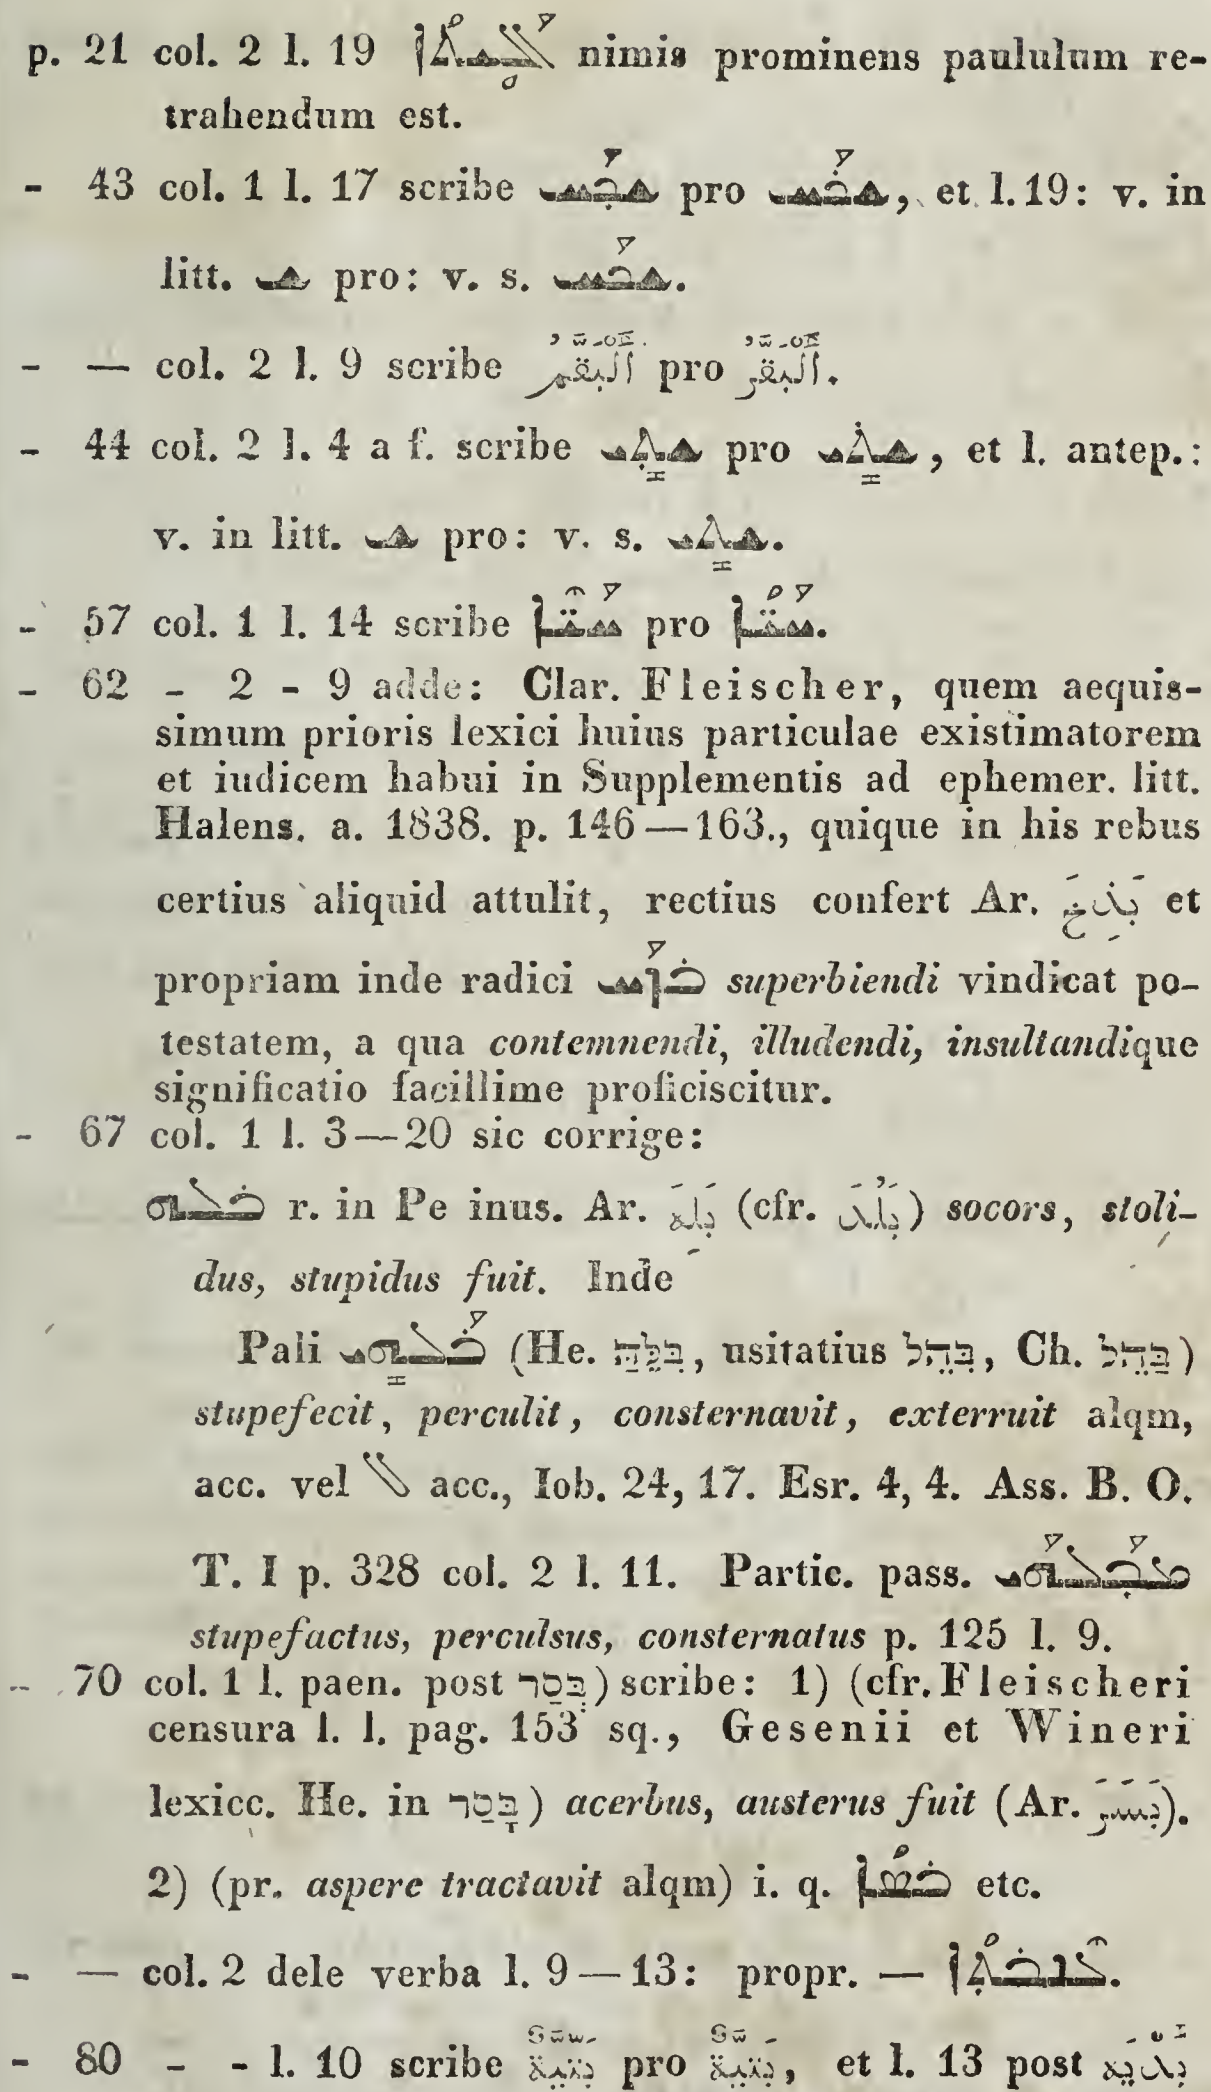 p. 21 col. 2 l. 19 nimis prominens paululum re-
trahendum est.
- 43 col. 1 l. 17 scribe pro , et l. 19: v. in
litt. pro: v. s. .
- — col. 2 l. 9 scribe اَلْبَقَّمُ pro اَلْبَقَّرُ.
- 44 col. 2 l. 4 a f. scribe pro , et l. antep.:
v. in litt. pro: v. s. .
- 57 col. 1 l. 14 scribe pro .
- 62 - 2 - 9 adde: Clar. Fleischer, quem aequis-
simum prioris lexici huius particulae existimatorem
et iudicem habui in Supplementis ad ephemer. litt.
Halens. a. 1838. p. 146—163., quique in his rebus
certius aliquid attulit, rectius confert Ar. بَذِخَ et
propriam inde radici ܒܙܰܚ superbiendi vindicat po-
testatem, a qua contemnendi, illudendi, insultandique
significatio facillime proficiscitur.
- 67 col. 1 l. 3—20 sic corrige:
ܒܠܗ r. in Pe inus. Ar. بَلِهَ (cfr. بَلُدَ) socors, stoli-
dus, stupidus fuit. Inde
Pali ܒܰܠܗܝ (He. בִּלֵּהַּ, usitatius בִּהֵל, Ch. בַּהֵל)
stupefecit, perculit, consternavit, exterruit alqm,
acc. vel ܠ acc., Iob. 24, 17. Esr. 4, 4. Ass. B. O.
T. I p. 328 col. 2 l. 11. Partic. pass. ܡܒܰܠܗܰܝ
stupefactus, perculsus, consternatus p. 125 l. 9.
- 70 col. 1 l. paen. post בְּסַר) scribe: 1) (cfr. Fleischeri
censura l. l. pag. 153 sq., Gesenii et Wineri
lexicc. He. in בָּסַר) acerbus, austerus fuit (Ar. بَسَرَ).
2) (pr. aspere tractavit alqm) i. q. ܒܣܳܐ etc.
- — col. 2 dele verba l. 9—13: propr. — .
- 80 - - l. 10 scribe pro , et l. 13 post